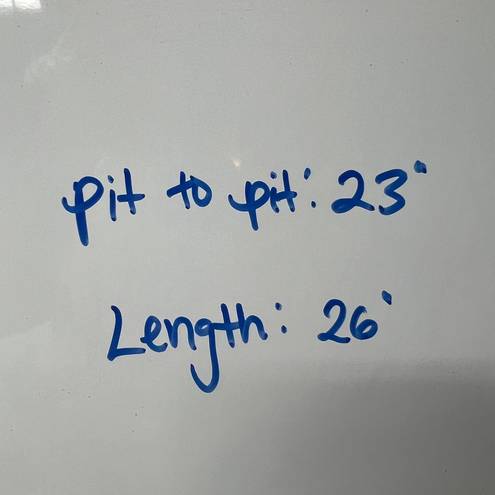 pit to pit: 23"
Length: 26"